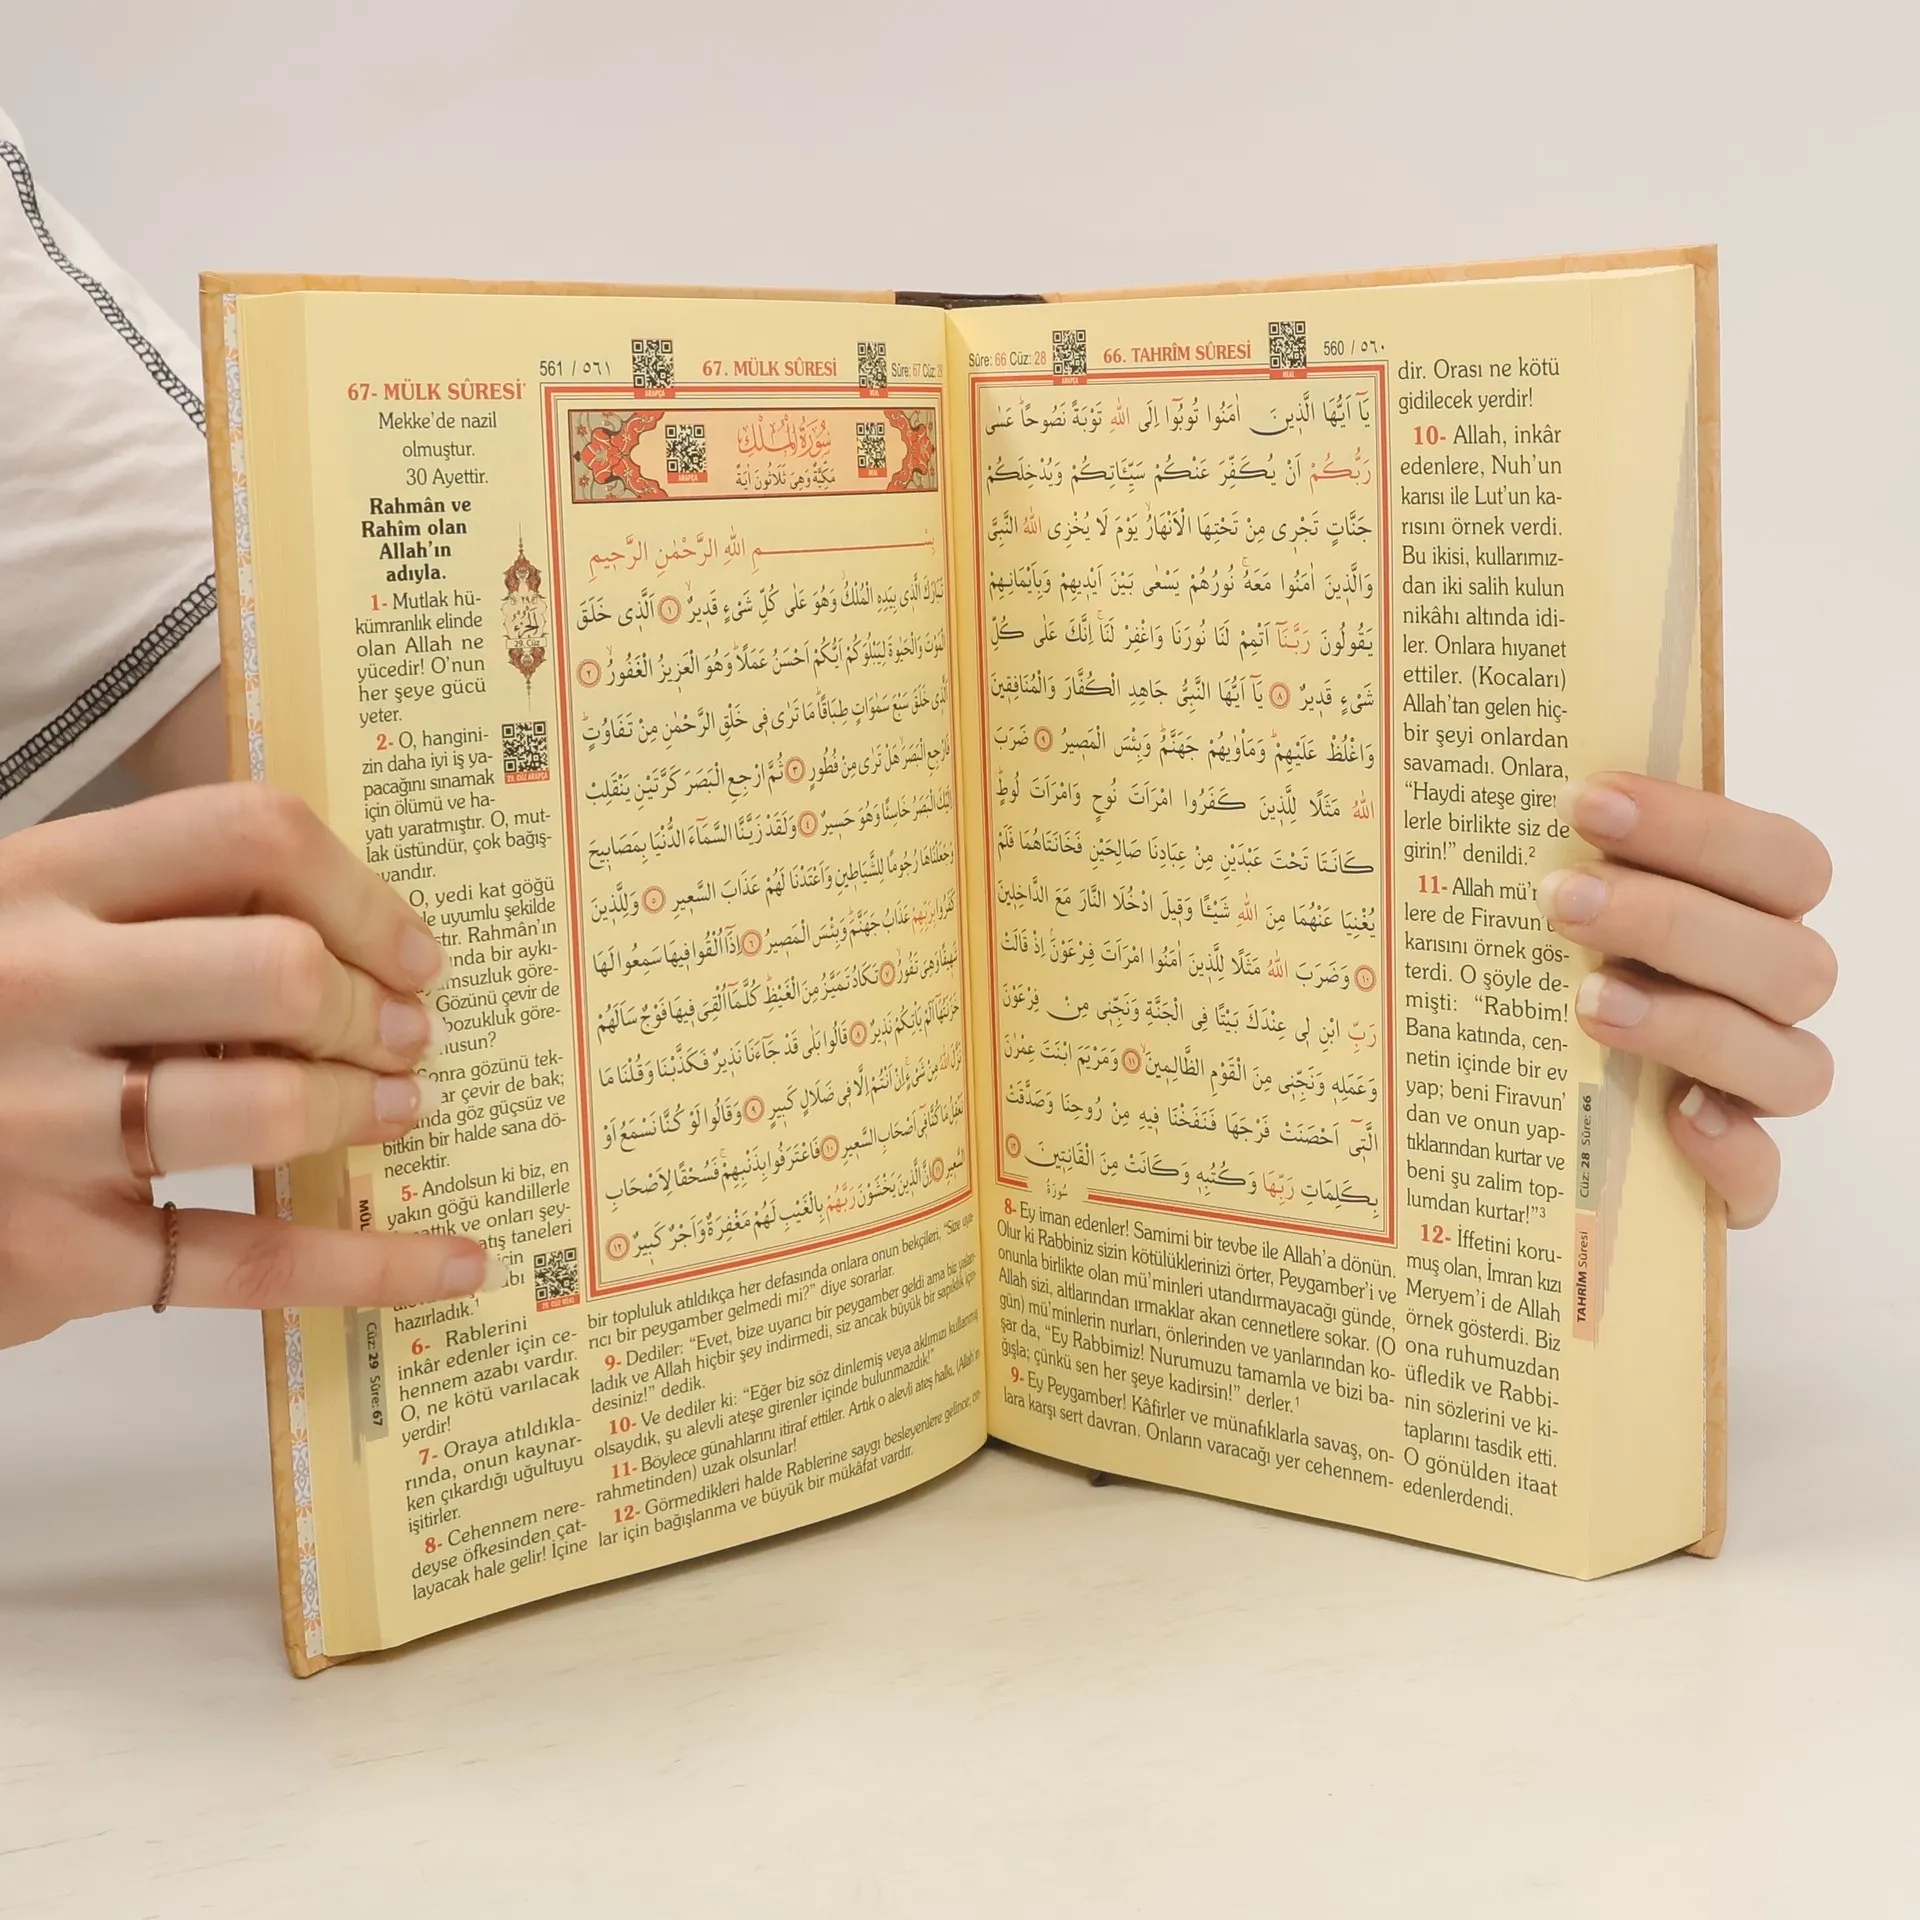 Sûre: 66 Cüz: 28
66. TAHRÎM SÛRESİ
560 / ٥٦٠
ARAPÇA
MEAL
يَٓا اَيُّهَا الَّذ۪ينَ اٰمَنُوا تُوبُٓوا اِلَى اللّٰهِ تَوْبَةً نَصُوحًاۜ عَسٰى
رَبُّكُمْ اَنْ يُكَفِّرَ عَنْكُمْ سَيِّـَٔاتِكُمْ وَيُدْخِلَكُمْ
جَنَّاتٍ تَجْر۪ي مِنْ تَحْتِهَا الْاَنْهَارُۙ يَوْمَ لَا يُخْزِي اللّٰهُ النَّبِيَّ
وَالَّذ۪ينَ اٰمَنُوا مَعَهُۚ نُورُهُمْ يَسْعٰى بَيْنَ اَيْد۪يهِمْ وَبِاَيْمَانِهِمْ
يَقُولُونَ رَبَّنَٓا اَتْمِمْ لَنَا نُورَنَا وَاغْفِرْ لَنَاۚ اِنَّكَ عَلٰى كُلِّ
شَيْءٍ قَد۪يرٌ ٨ يَٓا اَيُّهَا النَّبِيُّ جَاهِدِ الْكُفَّارَ وَالْمُنَافِق۪ينَ
وَاغْلُظْ عَلَيْهِمْۜ وَمَأْوٰيهُمْ جَهَنَّمُۜ وَبِئْسَ الْمَص۪يرُ ٩ ضَرَبَ
اللّٰهُ مَثَلًا لِلَّذ۪ينَ كَفَرُوا امْرَاَتَ نُوحٍ وَامْرَاَتَ لُوطٍۜ
كَانَتَا تَحْتَ عَبْدَيْنِ مِنْ عِبَادِنَا صَالِحَيْنِ فَخَانَتَاهُمَا فَلَمْ
يُغْنِيَا عَنْهُمَا مِنَ اللّٰهِ شَيْـًٔا وَق۪يلَ ادْخُلَا النَّارَ مَعَ الدَّاخِل۪ينَ
١٠ وَضَرَبَ اللّٰهُ مَثَلًا لِلَّذ۪ينَ اٰمَنُوا امْرَاَتَ فِرْعَوْنَۢ اِذْ قَالَتْ
رَبِّ ابْنِ ل۪ي عِنْدَكَ بَيْتًا فِي الْجَنَّةِ وَنَجِّن۪ي مِنْ فِرْعَوْنَ
وَعَمَلِه۪ وَنَجِّن۪ي مِنَ الْقَوْمِ الظَّالِم۪ينَۙ ١١ وَمَرْيَمَ ابْنَتَ عِمْرٰنَ
الَّت۪ٓي اَحْصَنَتْ فَرْجَهَا فَنَفَخْنَا ف۪يهِ مِنْ رُوحِنَا وَصَدَّقَتْ
بِكَلِمَاتِ رَبِّهَا وَكُتُبِه۪ وَكَانَتْ مِنَ الْقَانِت۪ينَ ١٢
سُورَةُ
8- Ey iman edenler! Samimi bir tevbe ile Allah'a dönün.
Olur ki Rabbiniz sizin kötülüklerinizi örter, Peygamber'i ve
onunla birlikte olan mü'minleri utandırmayacağı günde,
Allah sizi, altlarından ırmaklar akan cennetlere sokar. (O
gün) mü'minlerin nurları, önlerinden ve yanlarından ko-
şar da, "Ey Rabbimiz! Nurumuzu tamamla ve bizi ba-
ğışla; çünkü sen her şeye kadirsin!" derler.¹
9- Ey Peygamber! Kâfirler ve münafıklarla savaş, on-
lara karşı sert davran. Onların varacağı yer cehennem-
dir. Orası ne kötü
gidilecek yerdir!
10- Allah, inkâr
edenlere, Nuh'un
karısı ile Lut'un ka-
rısını örnek verdi.
Bu ikisi, kullarımız-
dan iki salih kulun
nikâhı altında idi-
ler. Onlara hıyanet
ettiler. (Kocaları)
Allah'tan gelen hiç-
bir şeyi onlardan
savamadı. Onlara,
"Haydi ateşe giren
lerle birlikte siz de
girin!" denildi.²
11- Allah mü'
lere de Firavun'
karısını örnek gös-
terdi. O şöyle de-
mişti: "Rabbim!
Bana katında, cen-
netin içinde bir ev
yap; beni Firavun'
dan ve onun yap-
tıklarından kurtar ve
beni şu zalim top-
lumdan kurtar!"³
12- İffetini koru-
muş olan, İmran kızı
Meryem'i de Allah
örnek gösterdi. Biz
ona ruhumuzdan
üfledik ve Rabbi-
nin sözlerini ve ki-
taplarını tasdik etti.
O gönülden itaat
edenlerdendi.
Cüz: 28 Sûre: 66
TAHRÎM Sûresi
561 / ٥٦١
67. MÜLK SÛRESİ
Sûre: 67 Cüz: 29
ARAPÇA
MEAL
سُورَةُ الْمُلْكِ
مَكِّيَّةٌ وَهِيَ ثَلَاثُونَ اٰيَةً
ARAPÇA
MEAL
بِسْمِ اللّٰهِ الرَّحْمٰنِ الرَّح۪يمِ
تَبَارَكَ الَّذ۪ي بِيَدِهِ الْمُلْكُۘ وَهُوَ عَلٰى كُلِّ شَيْءٍ قَد۪يرٌۙ ١ اَلَّذ۪ي خَلَقَ
الْمَوْتَ وَالْحَيٰوةَ لِيَبْلُوَكُمْ اَيُّكُمْ اَحْسَنُ عَمَلًاۜ وَهُوَ الْعَز۪يزُ الْغَفُورُۙ ٢
اَلَّذ۪ي خَلَقَ سَبْعَ سَمٰوَاتٍ طِبَاقًاۜ مَا تَرٰى ف۪ي خَلْقِ الرَّحْمٰنِ مِنْ تَفَاوُتٍۜ
فَارْجِعِ الْبَصَرَۙ هَلْ تَرٰى مِنْ فُطُورٍ ٣ ثُمَّ ارْجِعِ الْبَصَرَ كَرَّتَيْنِ يَنْقَلِبْ
اِلَيْكَ الْبَصَرُ خَاسِئًا وَهُوَ حَس۪يرٌ ٤ وَلَقَدْ زَيَّنَّا السَّمَٓاءَ الدُّنْيَا بِمَصَاب۪يحَ
وَجَعَلْنَاهَا رُجُومًا لِلشَّيَاط۪ينِ وَاَعْتَدْنَا لَهُمْ عَذَابَ السَّع۪يرِ ٥ وَلِلَّذ۪ينَ
كَفَرُوا بِرَبِّهِمْ عَذَابُ جَهَنَّمَۜ وَبِئْسَ الْمَص۪يرُ ٦ اِذَٓا اُلْقُوا ف۪يهَا سَمِعُوا لَهَا
شَه۪يقًا وَهِيَ تَفُورُۙ ٧ تَكَادُ تَمَيَّزُ مِنَ الْغَيْظِۜ كُلَّمَٓا اُلْقِيَ ف۪يهَا فَوْجٌ سَاَلَهُمْ
خَزَنَتُهَٓا اَلَمْ يَأْتِكُمْ نَذ۪يرٌ ٨ قَالُوا بَلٰى قَدْ جَٓاءَنَا نَذ۪يرٌ فَكَذَّبْنَا وَقُلْنَا مَا
نَزَّلَ اللّٰهُ مِنْ شَيْءٍۚ اِنْ اَنْتُمْ اِلَّا ف۪ي ضَلَالٍ كَب۪يرٍ ٩ وَقَالُوا لَوْ كُنَّا نَسْمَعُ اَوْ
نَعْقِلُ مَا كُنَّا ف۪ٓي اَصْحَابِ السَّع۪يرِ ١٠ فَاعْتَرَفُوا بِذَنْبِهِمْۚ فَسُحْقًا لِاَصْحَابِ
السَّع۪يرِ ١١ اِنَّ الَّذ۪ينَ يَخْشَوْنَ رَبَّهُمْ بِالْغَيْبِ لَهُمْ مَغْفِرَةٌ وَاَجْرٌ كَب۪يرٌ ١٢
67- MÜLK SÛRESİ*
Mekke'de nazil
olmuştur.
30 Ayettir.
Rahmân ve
Rahîm olan
Allah'ın
adıyla.
1- Mutlak hü-
kümranlık elinde
olan Allah ne
yücedir! O'nun
her şeye gücü
yeter.
2- O, hangini-
zin daha iyi iş ya-
pacağını sınamak
için ölümü ve ha-
yatı yaratmıştır. O, mut-
lak üstündür, çok bağış-
yandır.
O, yedi kat göğü
uyumlu şekilde
Rahmân'ın
bir aykı-
görе-
Gözünü çevir de
bozukluk göre-
gözünü tek-
çevir de bak;
göz güçsüz ve
bitkin bir halde sana dö-
necektir.
5- Andolsun ki biz, en
yakın göğü kandillerle
ve onları şey-
taneleri
hazırladık.¹
6- Rablerini
inkâr edenler için ce-
hennem azabı vardır.
O, ne kötü varılacak
yerdir!
7- Oraya atıldıkla-
rında, onun kaynar-
ken çıkardığı uğultuyu
işitirler.
8- Cehennem nere-
deyse öfkesinden çat-
layacak hale gelir! İçine
٢٩
اَلْجُزْءُ
29. Cüz
29. CÜZ ARAPÇA
29. CÜZ MEAL
Cüz: 29 Sûre: 67
bir topluluk atıldıkça her defasında onlara onun bekçileri, "Size uya-
rıcı bir peygamber gelmedi mi?" diye sorarlar.
9- Dediler: "Evet, bize uyarıcı bir peygamber geldi ama biz yalan-
ladık ve Allah hiçbir şey indirmedi, siz ancak büyük bir sapıklık için-
desiniz!" dedik.
10- Ve dediler ki: "Eğer biz söz dinlemiş veya aklımızı kullanmış
olsaydık, şu alevli ateşe girenler içinde bulunmazdık!"
11- Böylece günahlarını itiraf ettiler. Artık o alevli ateş halkı, (Allah'ın
rahmetinden) uzak olsunlar!
12- Görmedikleri halde Rablerine saygı besleyenlere gelince, on-
lar için bağışlanma ve büyük bir mükâfat vardır.